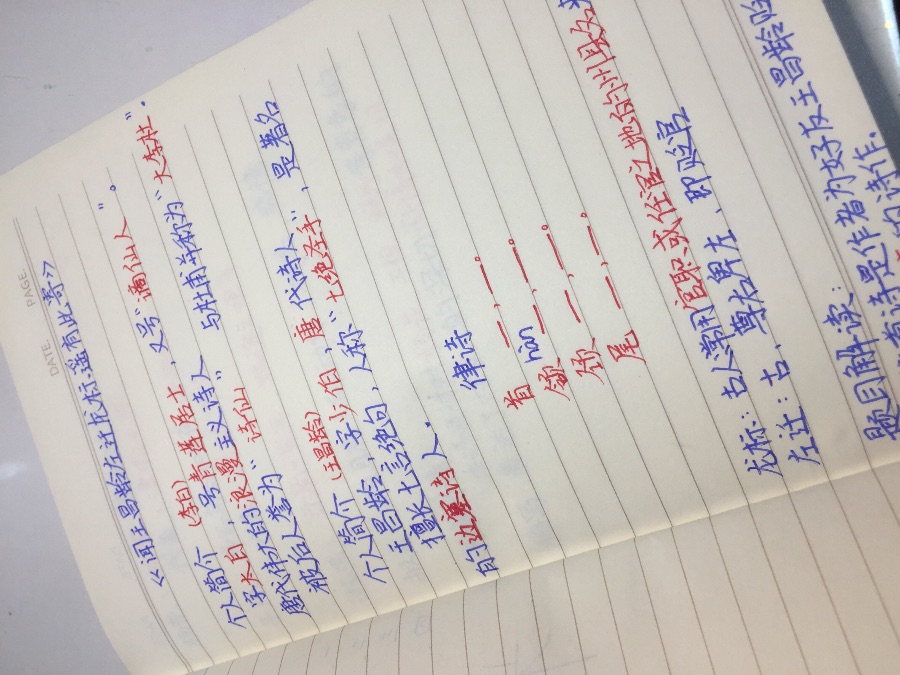 DATE. PAGE.
《闻王昌龄左迁龙标遥有此寄》
个人简介(李白)
字太白,号青莲居士,又号"谪仙人"。
唐代伟大的浪漫主义诗人
被后人誉为"诗仙" 与杜甫并称为"大李杜".
个人简介(王昌龄)
王昌龄,字少伯,唐代诗人,是著名
擅长七言绝句,人称"七绝圣手",
的边塞诗人.
律诗
首 一,一。
hàn
颔 一,一。
颈 一,一。
尾 一,一。
龙标:古人常用官职或任官之地的州县名来
左迁:古,尊右卑左,即贬官
题目解读:
诗是作者为好友王昌龄贬
的诗作.